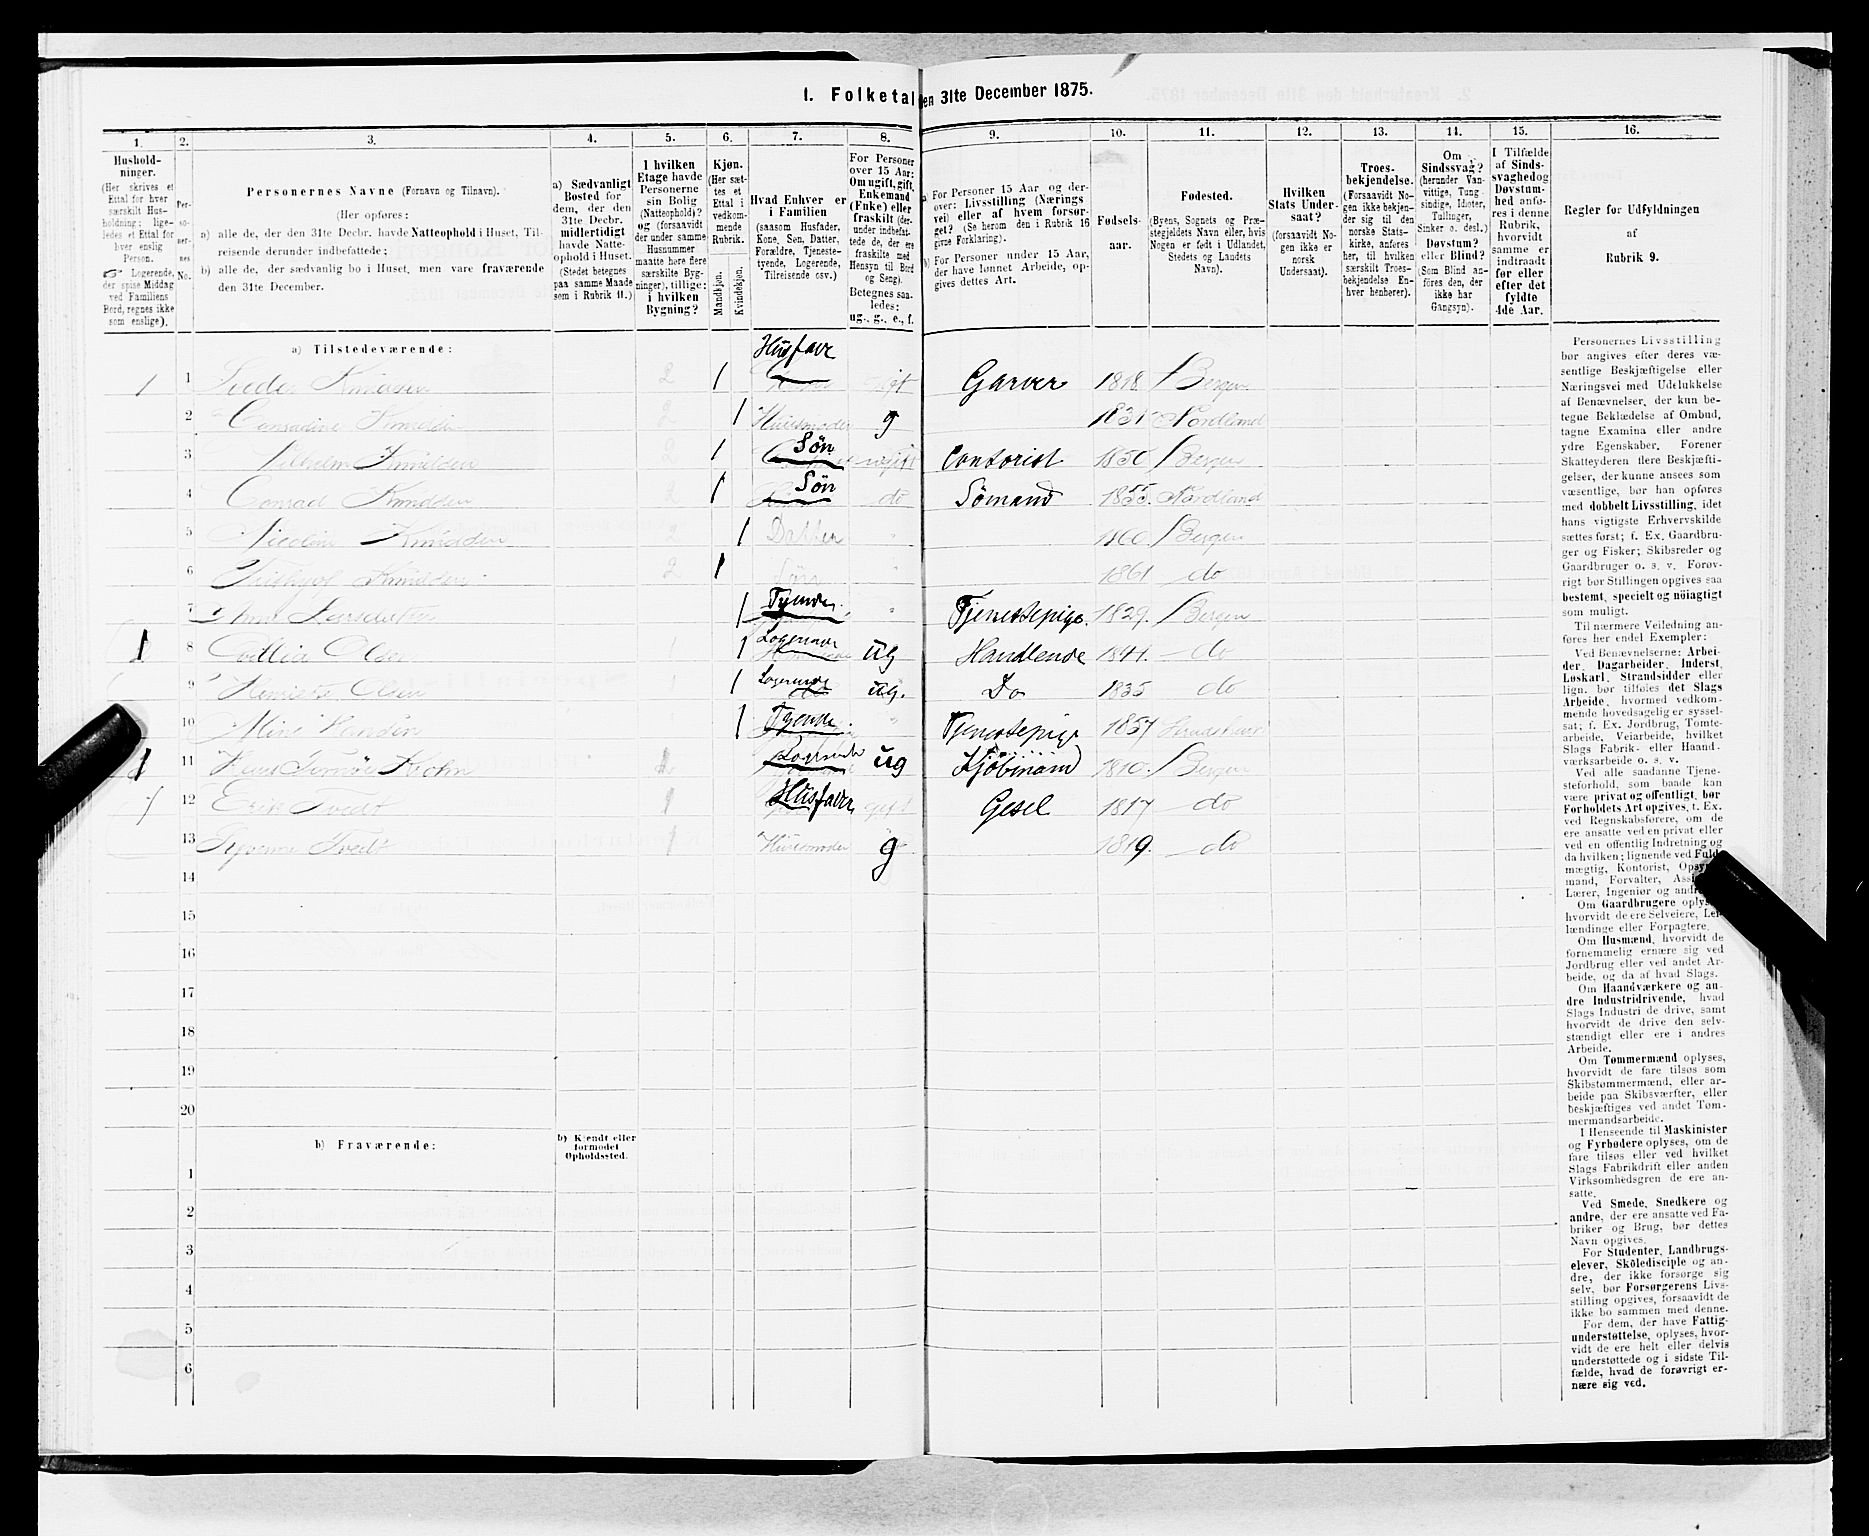 1. Folketal den 31te December 1875.
1. 2. 3. 4. 5. 6. 7. 8. 9. 10. 11. 12. 13. 14. 15. 16.
Husholdninger.
(Her skrives et Ettal for hver særskilt Husholdning; ligeledes et Ettal for hver enslig Person.
☞ Logerende, der spise Middag ved Familiens Bord, regnes ikke som enslige).
Personernes No.
Personernes Navne (Fornavn og Tilnavn).
(Her opføres:
a) alle de, der den 31te Decbr. havde Natteophold i Huset, Tilreisende derunder indbefattede;
b) alle de, der sædvanlig bo i Huset, men vare fraværende den 31te December.
a) Sædvanligt Bosted for dem, der den 31te Decbr. midlertidigt havde Natteophold i Huset.
(Stedet betegnes paa samme Maade som i Rubrik 11.)
I hvilken Etage havde Personerne sin Bolig (Natteophold)? og (forsaavidt der under samme Husnummer maatte høre flere særskilte Bygninger), tillige: i hvilken Bygning?
Kjøn.
(Her sættes et Ettal i vedkommende Rubrik.
Mandkjøn. Kvindekjøn.
Hvad Enhver er i Familien
(saasom Husfader, Kone, Søn, Datter, Forældre, Tjenestetyende, Logerende, Tilreisende osv.)
For Personer over 15 Aar: Om ugift, gift, Enkemand (Enke) eller fraskilt (derunder indbefattede de, der ere fraskilte med Hensyn til Bord og Seng).
Betegnes saaledes: ug., g., e., f.
For Personer 15 Aar og derover: Livsstilling (Næringsvei) eller af hvem forsørget? (Se herom den i Rubrik 16 givne Forklaring).
For Personer under 15 Aar, der have lønnet Arbeide, opgives dettes Art.
Fødselsaar.
Fødested.
(Byens, Sognets og Præstegjeldets Navn eller, hvis Nogen er født i Udlandet, Stedets og Landets Navn).
Hvilken Stats Undersaat?
(forsaavidt Nogen ikke er norsk Undersaat).
Troesbekjendelse.
(Forsaavidt Nogen ikke bekjender sig til den norske Statskirke, anføres her, til hvilken særskilt Troesbekjendelse Enhver henhører).
Om Sindssvag?
(herunder Vanvittige, Tungsindige, Idioter, Tullinger, Sinker o. desl.)
Døvstum? eller Blind?
(Som Blind anføres den, der ikke har Gangsyn).
I Tilfælde af Sindssvaghed og Døvstumhed anføres i denne Rubrik, hvorvidt samme er indtraadt før eller efter det fyldte 4de Aar.
Regler for Udfyldningen af Rubrik 9.
a) Tilstedeværende:
1 1 Peder Knudsen 2 1 Husfader gift Garver 1818 Bergen
2 Knudsen 2 1 Huusmoder g 1831 Nordland
3 Vilhelm Knudsen 2 1 Søn ugift Contorist 1850 Bergen
4 Conrad Knudsen 2 1 Søn do Sømand 1855 Nordland
5 Nicoline Knudsen 2 1 Datter " 1860 Bergen
6 Knudsen 2 1 Søn " 1861 do
7 1 Tyende " Tjenestepige 1829 Bergen
1 8 Olsen 1 1 Logerende ug Handlende 1841 do
9 Olsen 1 1 Logerende ug. Do 1835 do
10 1 Tyende " Tjenestepige 1857
1 11 Krohn 1 Logerende ug Kjøbmand 1810 Bergen
1 12 Erik Tvedt 1 Husfader gift Gesel 1817 do
13 Tvedt 1 Huusmoder g 1819 do
14
15
16
17
18
19
20
b) Fraværende:
b) Kjendt eller formodet Opholdssted.
1
2
3
4
5
6
Personernes Livsstilling
bør angives efter deres væ-
sentlige Beskjæftigelse eller
Næringsvei med Udelukkelse
af Benævnelser, der kun be-
tegne Beklædelse af Ombud,
tagne Examina eller andre
ydre Egenskaber. Forener
Skatteyderen flere Beskjæfti-
gelser, der kunne ansees som
væsentlige, bør han opføres
med dobbelt Livsstilling, idet
hans vigtigste Erhvervskilde
sættes først; f. Ex. Gaardbru-
ger og Fisker; Skibsreder og
Gaardbruger o. s. v. Forøv-
rigt bør Stillingen opgives saa
bestemt, specielt og nöiagtigt
som muligt.
Til nærmere Veiledning an-
føres her endel Exempler:
Ved Benævnelserne: Arbei-
der, Dagarbeider, Inderst,
Løskarl, Strandsidder eller
lign. bør tilføies det Slags
Arbeide, hvormed vedkom-
mende hovedsagelig er syssel-
sat; f. Ex. Jordbrug, Tomte-
arbeide, Veiarbeide, hvilket
Slags Fabrik- eller Haand-
værksarbeide o. s. v.
Ved alle saadanne Tjene-
steforhold, som baade kan
være privat og offentligt, bør
Forholdets Art opgives, t. Ex.
ved Regnskabsførere, om de
ere ansatte ved en privat eller
ved en offentlig Indretning og
da hvilken; lignende ved Fuld-
mægtig, Kontorist, Opsyns-
mand, Forvalter,
Lærer, Ingeniør og andre.
Om Gaardbrugere oplyses,
hvorvidt de ere Selveiere, Lei-
lændinge eller Forpagtere.
Om Husmænd, hvorvidt de
fornemmelig ernære sig ved
Jordbrug eller ved andet Ar-
beide, og da af hvad Slags.
Om Haandværkere og an-
dre Industridrivende, hvad
Slags Industri de drive, samt
hvorvidt de drive den selv-
stændigt eller ere i andres
Arbeide.
Om Tømmermænd oplyses,
hvorvidt de fare tilsøs som
Skibstømmermænd, eller ar-
beide paa Skibsværfter, eller
beskjæftiges ved andet Tøm-
mermandsarbeide.
I Henseende til Maskinister
og Fyrbødere oplyses, om de
fare tilsøs eller ved hvilket
Slags Fabrikdrift eller anden
Virksomhedsgren de ere an-
satte.
Ved Smede, Snedkere og
andre, der ere ansatte ved Fa-
briker og Brug, bør dettes
Navn opgives.
For Studenter, Landbrugs-
elever, Skôledisciple og an-
dre, der ikke forsørge sig
selv, bør Forsørgerens Livs-
stilling opgives, forsaavidt de
ikke bo sammen med denne.
For dem, der have Fattig-
understøttelse, oplyses, hvor-
vidt de ere helt eller delvis
understøttede og i sidste Til-
fælde, hvad de forøvrigt er-
nære sig ved.